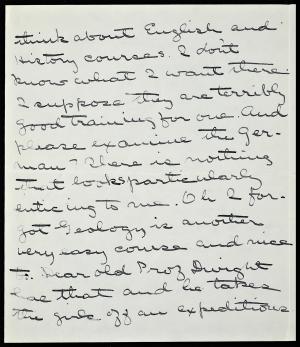 think about English and
History courses. I don't
know what I want there
I suppose they are terribly
good training for one. And
please examine the Ger-
man - There is nothing
that looks particularly
enticing to me. Oh I for-
got Geology is another
very easy course and nice
to. Dear old Prof Dwight
has that and he takes
the girls off on expeditions